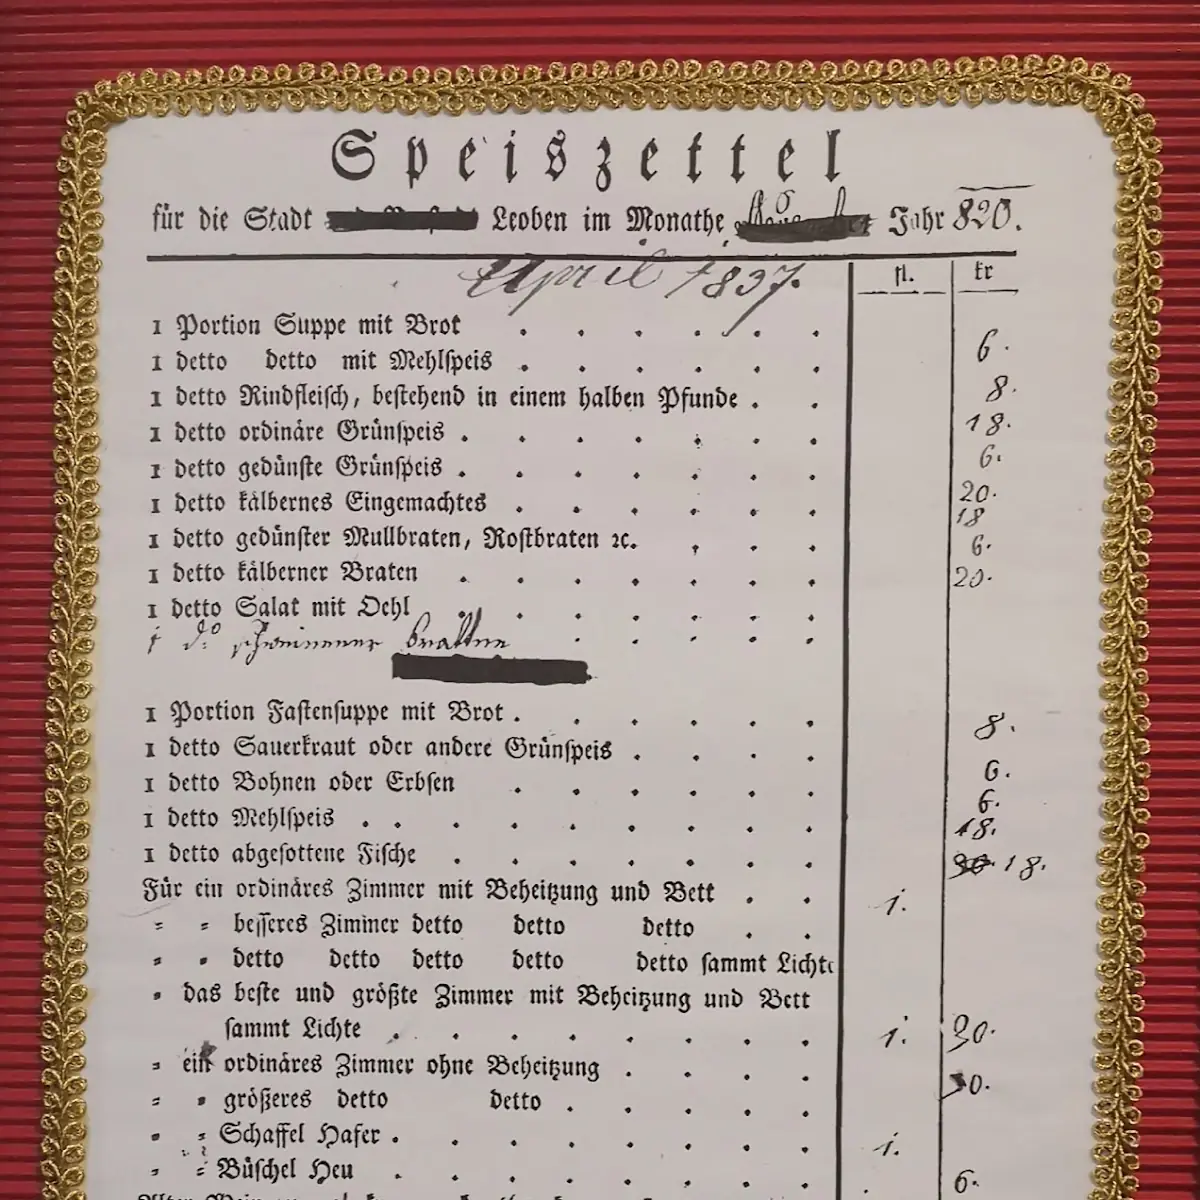 Speiszettel
für die Stadt Leoben im Monathe Jahr 820.
April 1837.
fl. kr
1 Portion Suppe mit Brot . . . . . . 6.
1 detto detto mit Mehlspeis . . . . . . 8.
1 detto Rindfleisch, bestehend in einem halben Pfunde . . 18.
1 detto ordinäre Grünspeis . . . . . . . 6.
1 detto gedünste Grünspeis . . . . . . . 20.
1 detto kälbernes Eingemachtes . . . . . . 18
1 detto gedünster Mullbraten, Rostbraten ꝛc. . . . 6.
1 detto kälberner Braten . . . . . . . 20.
1 detto Salat mit Oehl . . . . . . .
1 do schweinener bratten . . . . .
1 Portion Fastensuppe mit Brot . . . . . . 8.
1 detto Sauerkraut oder andere Grünspeis . . . . 6.
1 detto Bohnen oder Erbsen . . . . . . 6.
1 detto Mehlspeis . . . . . . . . . 18.
1 detto abgesottene Fische . . . . . . . 18.
Für ein ordinäres Zimmer mit Beheitzung und Bett . . 1.
= = besseres Zimmer detto detto detto . .
= = detto detto detto detto detto sammt Lichte
= das beste und größte Zimmer mit Beheitzung und Bett
sammt Lichte . . . . . . . . 1. 30.
= ein ordinäres Zimmer ohne Beheitzung . . . . 30.
= = größeres detto detto . . . . .
= = Schaffel Hafer . . . . . . . . 1.
= = Büschel Heu . . . . . . . . 6.